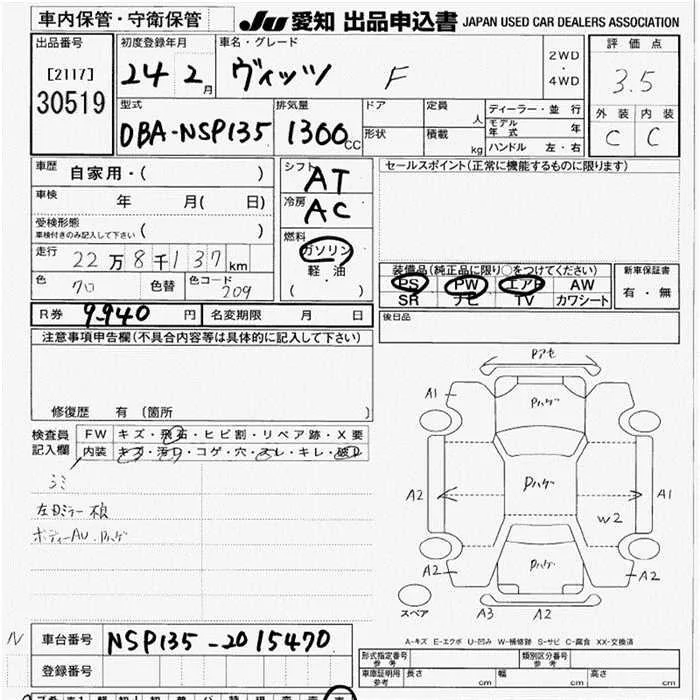 車内保管・守衛保管
JU 愛知 出品申込書 JAPAN USED CAR DEALERS ASSOCIATION
出品番号
[2117]
30519
初度登録年月
24 2月
車名・グレード
ヴィッツ F
2WD
・
4WD
評価点
3.5
外装 内装
C C
型式
DBA-NSP135
排気量
1300cc
ドア
形状
定員 人
積載 kg
ディーラー・並行
モデル年式 年
ハンドル 左・右
車歴 自家用・( )
車検 年 月( 日)
受検形態
車検付きのみ記入して下さい ( )
走行 22万8千137km
色 クロ 色替 色コード 209
シフト AT
冷房 AC
燃料
ガソリン
軽油
( ・ )
セールスポイント(正常に機能するものに限ります)
装備品(純正品に限り○をつけてください)
PS PW エアB AW
SR ナビ TV カワシート
新車保証書
有・無
R券 9,940 円 名変期限 月 日
後日品
注意事項申告欄(不具合内容等は具体的に記入して下さい)
修復歴 有 (箇所 )
検査員記入欄
FW キズ・飛石・ヒビ割・リペア跡・X要
内装 キズ・汚れ・コゲ・穴・スレ・キレ・破れ
シミ
左Dミラー 損
ボディーAU.Pハゲ
Pアセ
A1
Pハゲ
A2
Pハゲ
A1
W2
A2
Pハゲ
A2
スペア
A3
A2
A-キズ E-エクボ U-凹み W-補修跡 S-サビ C-腐食 XX-交換済
車台番号 NSP135-2015470
登録番号
型式指定番号 参考
類別区分番号 参考
車庫証明用 参考 長さ cm 幅 cm 高さ cm